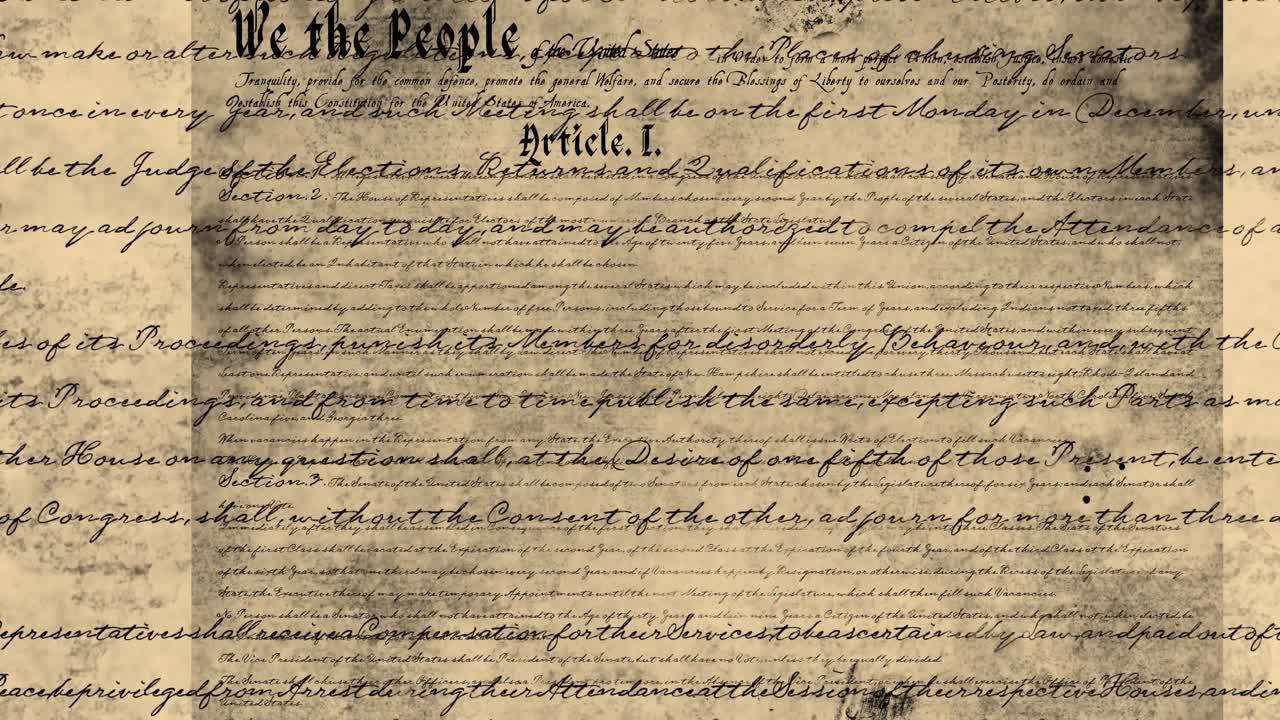 We the People of the United States in Order to form a more perfect Union, establish Justice, insure domestic
make or alter such to the Places of chusing Senators
Tranquility, provide for the common defence, promote the general Welfare, and secure the Blessings of Liberty to ourselves and our Posterity, do ordain and
establish this Constitution for the United States of America.
once in every Year, and such Meeting shall be on the first Monday in December, un
Article. I.
ll be the Judge of the Elections, Returns and Qualifications of its own Members, an
Section. 2. The House of Representatives shall be composed of Members chosen every second Year by the People of the several States, and the Electors in each State
shall have the Qualifications requisite for Electors of the most numerous Branch of the State Legislature
r may adjourn from day to day, and may be authorized to compel the Attendance of a
No Person shall be a Representative who shall not have attained to the Age of twenty five Years, and been seven Years a Citizen of the United States, and who shall not,
when elected be an Inhabitant of that State in which he shall be chosen
le.
Representatives and direct Taxes shall be apportioned among the several States which may be included within this Union, according to their respective Numbers, which
shall be determined by adding to the whole Number of free Persons, including those bound to Service for a Term of Years, and excluding Indians not taxed three fifths
of all other Persons. The actual Enumeration shall be made within three Years after the first Meeting of the Congress of the United States, and within every subsequent
es of its Proceedings, punish its Members for disorderly Behaviour, and, with the C
least one Representative and until such enumeration shall be made, the State of New Hampshire shall be entitled to chuse three Massachusetts eight, Rhode-Island and
its Proceedings, and from time to time publish the same, excepting such Parts as ma
Carolina five, and Georgia three
When vacancies happen in the Representation from any State, the Executive Authority thereof shall issue Writs of Election to fill such Vacancies
ther House on any question shall, at the Desire of one fifth of those Present, be ente
Section. 3. The Senate of the United States shall be composed of two Senators from each State, chosen by the Legislature thereof for six Years, and each Senator shall
have one Vote
of Congress, shall, without the Consent of the other, adjourn for more than three d
of the first Class shall be vacated at the Expiration of the second Year, of the second Class at the Expiration of the fourth Year, and of the third Class at the Expiration
of the sixth Year, so that one third may be chosen every second Year, and if Vacancies happen by Resignation, or otherwise, during the Recess of the Legislature of any
State, the Executive thereof may make temporary Appointments until the next Meeting of the Legislature, which shall then fill such Vacancies.
No Person shall be a Senator who shall not have attained to the Age of thirty Years and been nine Years a Citizen of the United States, and who shall not, when elected, be
epresentatives shall receive a Compensation for their Services, to be ascertained by Law, and paid out of t
The Vice President of the United States shall be President of the Senate, but shall have no Vote, unless they be equally divided
Peace, be privileged from Arrest during their Attendance at the Session of their respective Houses, and in
United States.